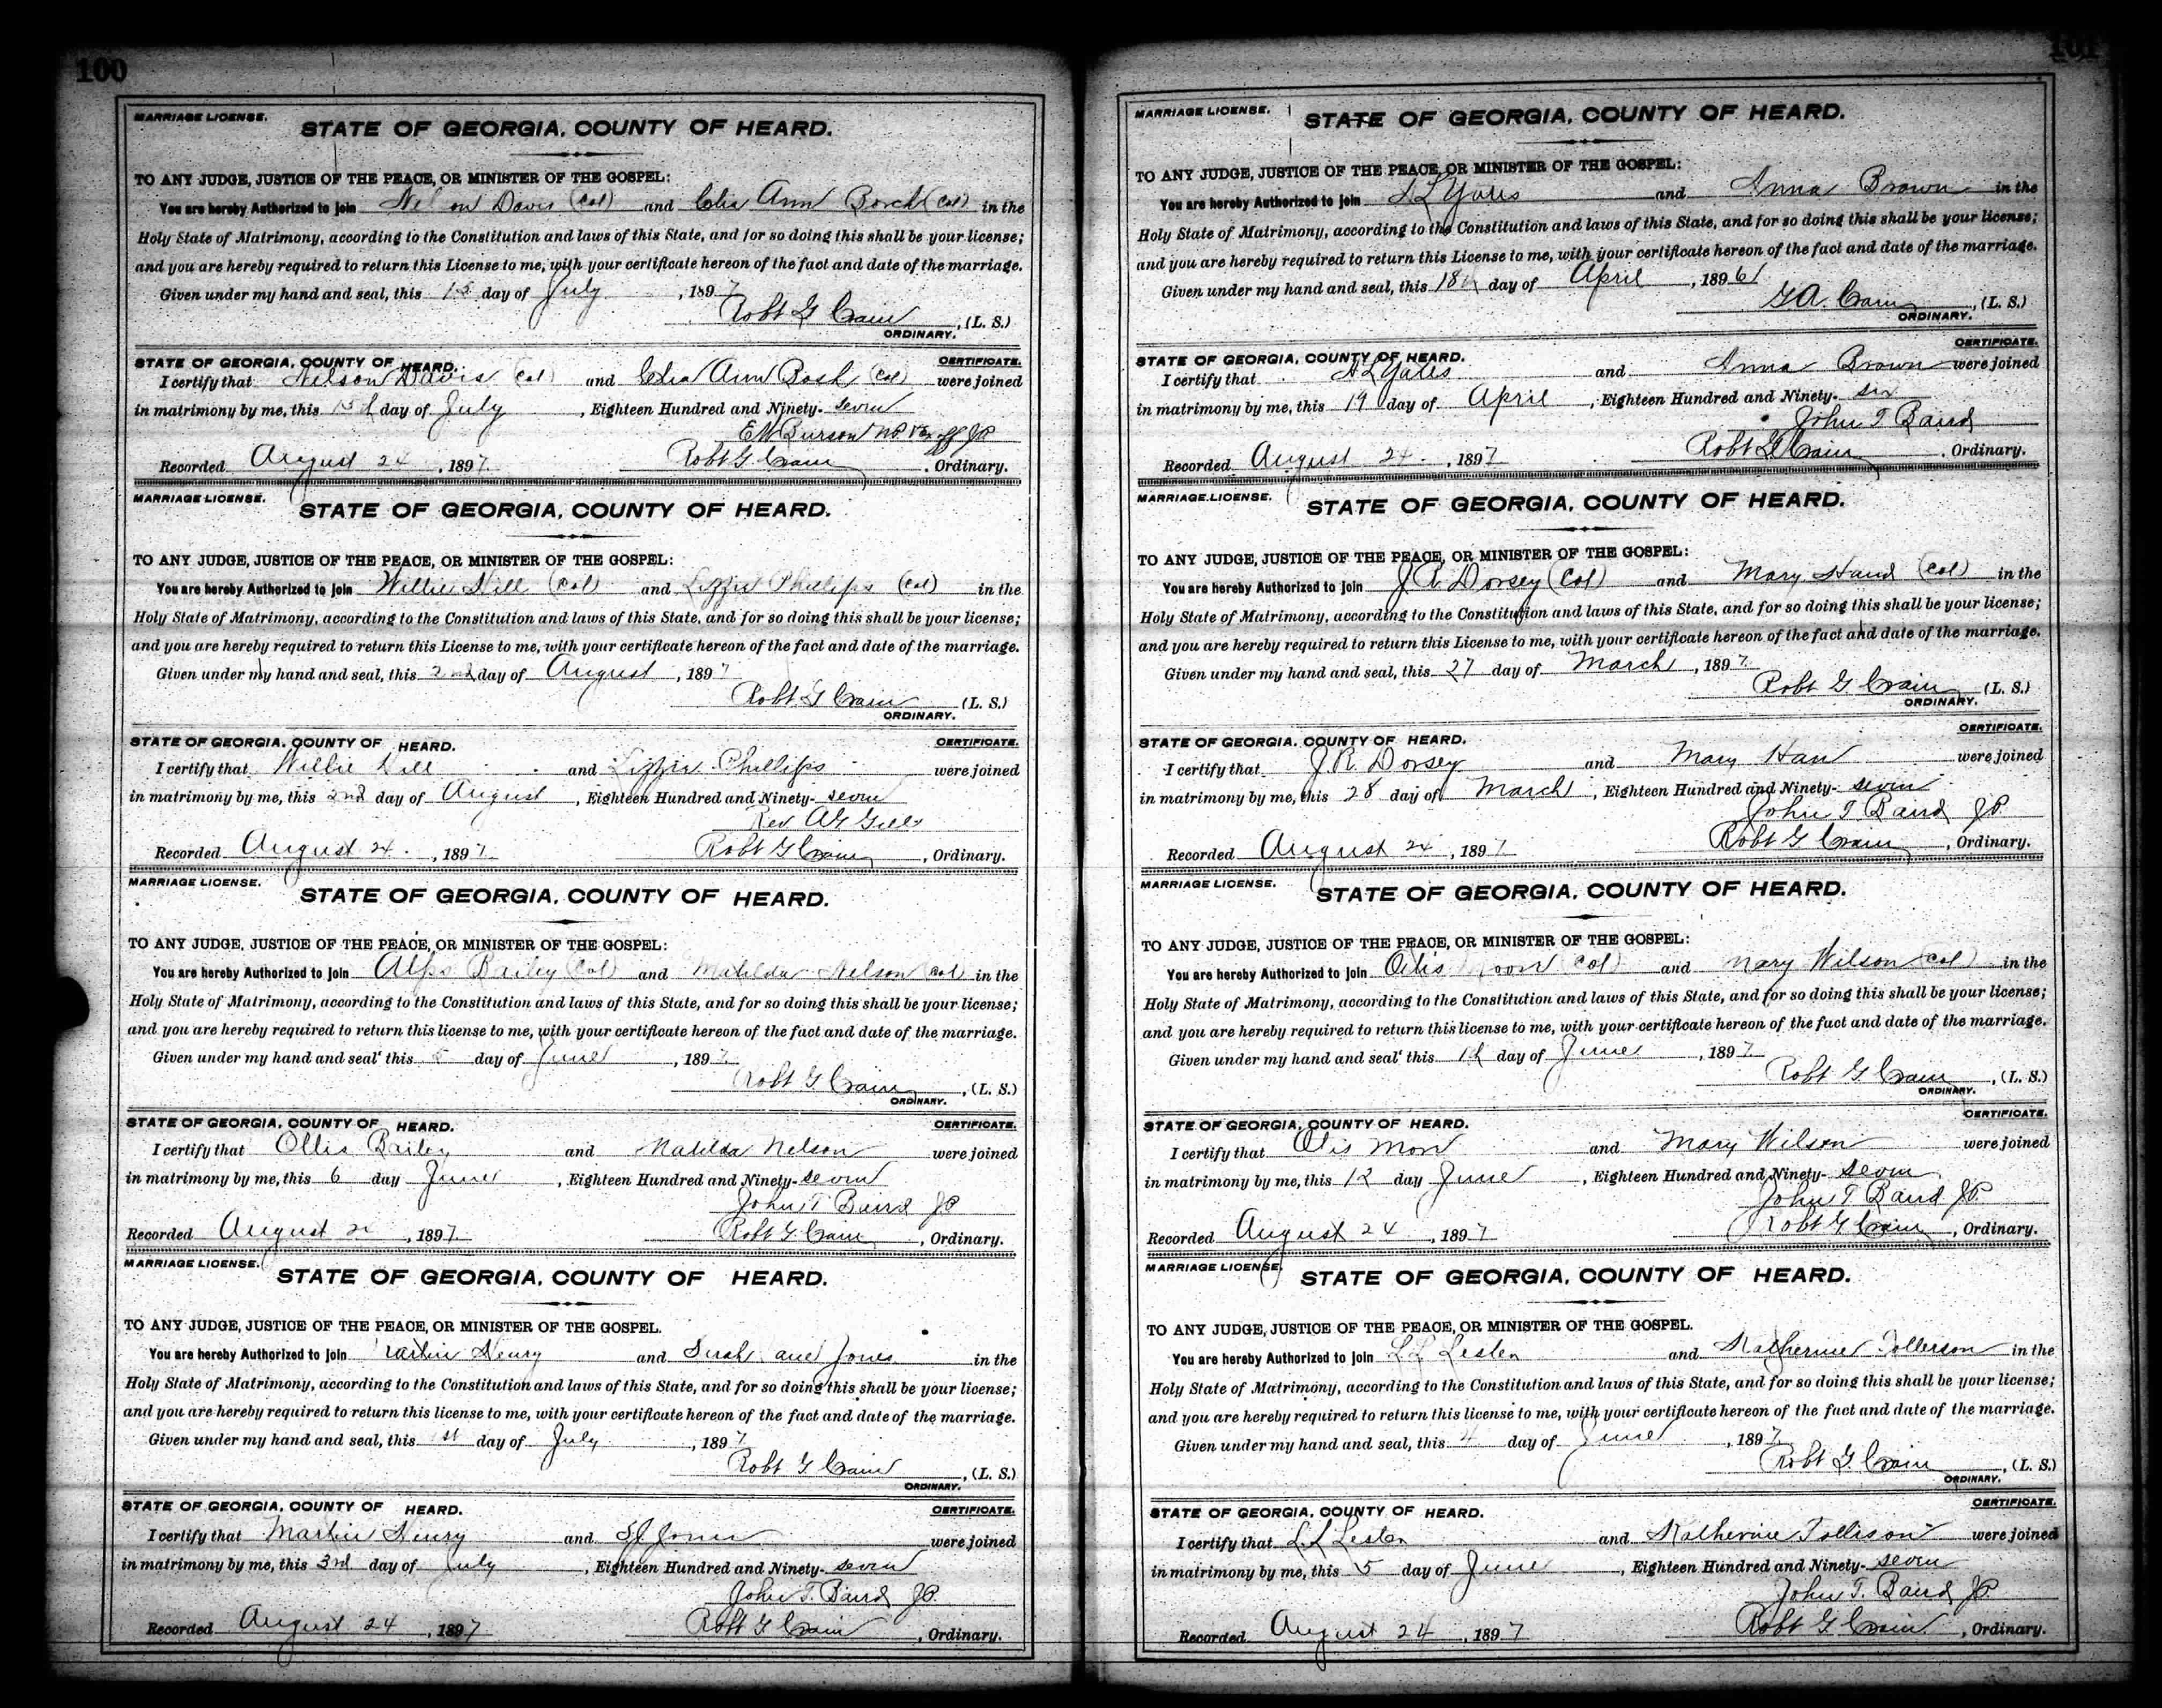 100
MARRIAGE LICENSE.
STATE OF GEORGIA, COUNTY OF HEARD.
TO ANY JUDGE, JUSTICE OF THE PEACE, OR MINISTER OF THE GOSPEL:
You are hereby Authorized to join Nelson Davis (Col) and Ann (Col) in the
Holy State of Matrimony, according to the Constitution and laws of this State, and for so doing this shall be your license;
and you are hereby required to return this License to me, with your certificate hereon of the fact and date of the marriage.
Given under my hand and seal, this 15 day of July, 1897
Robt G Crain, (L. S.)
ORDINARY.
STATE OF GEORGIA, COUNTY OF HEARD.
CERTIFICATE.
I certify that Nelson Davis (Col) and Ann (Col) were joined
in matrimony by me, this 15th day of July, Eighteen Hundred and Ninety-seven
E W Burson N.P. JP
Recorded August 24, 1897 Robt G. Crain, Ordinary.
MARRIAGE LICENSE.
STATE OF GEORGIA, COUNTY OF HEARD.
TO ANY JUDGE, JUSTICE OF THE PEACE, OR MINISTER OF THE GOSPEL:
You are hereby Authorized to join Willie Hill (Col) and Lizzie Phillips (Col) in the
Holy State of Matrimony, according to the Constitution and laws of this State, and for so doing this shall be your license;
and you are hereby required to return this License to me, with your certificate hereon of the fact and date of the marriage.
Given under my hand and seal, this 2nd day of August, 1897
Robt G Crain (L. S.)
ORDINARY.
STATE OF GEORGIA, COUNTY OF HEARD.
CERTIFICATE.
I certify that Willie Hill and Lizzie Phillips were joined
in matrimony by me, this 2nd day of August, Eighteen Hundred and Ninety-seven
Rev A G
Recorded August 24, 1897 Robt G Crain, Ordinary.
MARRIAGE LICENSE.
STATE OF GEORGIA, COUNTY OF HEARD.
TO ANY JUDGE, JUSTICE OF THE PEACE, OR MINISTER OF THE GOSPEL:
You are hereby Authorized to join Bailey (Col) and Matilda Nelson (Col) in the
Holy State of Matrimony, according to the Constitution and laws of this State, and for so doing this shall be your license;
and you are hereby required to return this license to me, with your certificate hereon of the fact and date of the marriage.
Given under my hand and seal' this 5 day of June, 1897
Robt G Crain, (L. S.)
ORDINARY.
STATE OF GEORGIA, COUNTY OF HEARD.
CERTIFICATE.
I certify that Ollis Bailey and Matilda Nelson were joined
in matrimony by me, this 6 day June, Eighteen Hundred and Ninety-seven
John T Baird JP
Recorded August, 1897 Robt G. Crain, Ordinary.
MARRIAGE LICENSE.
STATE OF GEORGIA, COUNTY OF HEARD.
TO ANY JUDGE, JUSTICE OF THE PEACE, OR MINISTER OF THE GOSPEL.
You are hereby Authorized to join Martin Henry and Sarah Jane Jones in the
Holy State of Matrimony, according to the Constitution and laws of this State, and for so doing this shall be your license;
and you are hereby required to return this license to me, with your certificate hereon of the fact and date of the marriage.
Given under my hand and seal, this 1st day of July, 1897
Robt G. Crain, (L. S.)
ORDINARY.
STATE OF GEORGIA, COUNTY OF HEARD.
CERTIFICATE.
I certify that Martin Henry and S J Jones were joined
in matrimony by me, this 3rd day of July, Eighteen Hundred and Ninety-seven
John T. Baird JP.
Recorded August 24, 1897 Robt G Crain, Ordinary.
101
MARRIAGE LICENSE.
STATE OF GEORGIA, COUNTY OF HEARD.
TO ANY JUDGE, JUSTICE OF THE PEACE, OR MINISTER OF THE GOSPEL:
You are hereby Authorized to join L Yates and Anna Brown in the
Holy State of Matrimony, according to the Constitution and laws of this State, and for so doing this shall be your license;
and you are hereby required to return this License to me, with your certificate hereon of the fact and date of the marriage.
Given under my hand and seal, this 18th day of April, 1896
G. A. Crain, (L. S.)
ORDINARY.
STATE OF GEORGIA, COUNTY OF HEARD.
CERTIFICATE.
I certify that L Yates and Anna Brown were joined
in matrimony by me, this 19 day of April, Eighteen Hundred and Ninety-six
John T Baird
Recorded August 24, 1897 Robt G Crain, Ordinary.
MARRIAGE LICENSE.
STATE OF GEORGIA, COUNTY OF HEARD.
TO ANY JUDGE, JUSTICE OF THE PEACE, OR MINISTER OF THE GOSPEL:
You are hereby Authorized to join J R Dorsey (Col) and Mary Hand (Col) in the
Holy State of Matrimony, according to the Constitution and laws of this State, and for so doing this shall be your license;
and you are hereby required to return this License to me, with your certificate hereon of the fact and date of the marriage.
Given under my hand and seal, this 27 day of March, 1897
Robt G. Crain (L. S.)
ORDINARY.
STATE OF GEORGIA, COUNTY OF HEARD.
CERTIFICATE.
I certify that J. R. Dorsey and Mary were joined
in matrimony by me, this 28 day of March, Eighteen Hundred and Ninety-seven
John T Baird JP.
Recorded August 24, 1897 Robt G Crain, Ordinary.
MARRIAGE LICENSE.
STATE OF GEORGIA, COUNTY OF HEARD.
TO ANY JUDGE, JUSTICE OF THE PEACE, OR MINISTER OF THE GOSPEL:
You are hereby Authorized to join Otis Moon (Col) and Mary Wilson (Col) in the
Holy State of Matrimony, according to the Constitution and laws of this State, and for so doing this shall be your license;
and you are hereby required to return this license to me, with your certificate hereon of the fact and date of the marriage.
Given under my hand and seal' this day of June, 1897
Robt G. Crain, (L. S.)
ORDINARY.
STATE OF GEORGIA, COUNTY OF HEARD.
CERTIFICATE.
I certify that Otis and Mary Wilson were joined
in matrimony by me, this 12 day June, Eighteen Hundred and Ninety-seven
John T Baird JP.
Recorded August 24, 1897 Robt G Crain, Ordinary.
MARRIAGE LICENSE.
STATE OF GEORGIA, COUNTY OF HEARD.
TO ANY JUDGE, JUSTICE OF THE PEACE, OR MINISTER OF THE GOSPEL.
You are hereby Authorized to join L. L Lester and Katherine Tollerson in the
Holy State of Matrimony, according to the Constitution and laws of this State, and for so doing this shall be your license;
and you are hereby required to return this license to me, with your certificate hereon of the fact and date of the marriage.
Given under my hand and seal, this 4 day of June, 1897
Robt G. Crain, (L. S.)
ORDINARY.
STATE OF GEORGIA, COUNTY OF HEARD.
CERTIFICATE.
I certify that L. L Lester and Katherine Tollison were joined
in matrimony by me, this 5 day of June, Eighteen Hundred and Ninety-seven
John T. Baird JP.
Recorded August 24, 1897 Robt G Crain, Ordinary.